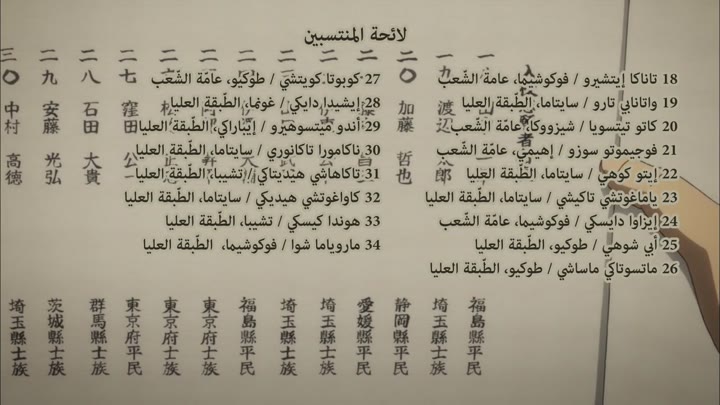 لائحة المنتسبين
18 تاناكا إيتشيرو / فوكوشيما، عامة الشّعب
19 واتانابي تارو / سايتاما، الطّبقة العليا
20 كاتو تيتسويا / شيزووكا، عامّة الشّعب
21 فوجيموتو سوزو / إهيمي، عامّة الشّعب
22 إيتو كوهي / سايتاما، الطّبقة العليا
23 ياماغوتشي تاكيشي / سايتاما، الطّبقة العليا
24 إيزاوا دايسكي / فوكوشيما، عامّة الشّعب
25 أبي شوهي / طوكيو، الطّبقة العليا
26 ماتسوتاكي ماساشي / طوكيو، الطّبقة العليا
27 كوبوتا كويتشي / طوكيو، عامّة الشّعب
28 إيشيدا دايكي / غونما، الطّبقة العليا
29 أندو ميتسوهيرو / إيباراكي، الطّبقة العليا
30 ناكامورا تاكانوري / سايتاما، الطّبقة العليا
31 تاكاهاشي هيديتاكي / تشيبا، الطّبقة العليا
32 كاواغوتشي هيديكي / سايتاما، الطّبقة العليا
33 هوندا كيسكي / تشيبا، الطّبقة العليا
34 ماروياما شوا / فوكوشيما، الطّبقة العليا
福島縣平民
一九 渡辺 太郎 埼玉縣士族
二〇 加藤 哲也 静岡縣平民
二 愛媛縣平民
二 埼玉縣士族
二 埼玉縣士族
二 福島縣平民
二 東京府士族
二 東京府士族
二七 窪田 公一 東京府平民
二八 石田 大貴 群馬縣士族
二九 安藤 光弘 茨城縣士族
三〇 中村 高徳 埼玉縣士族